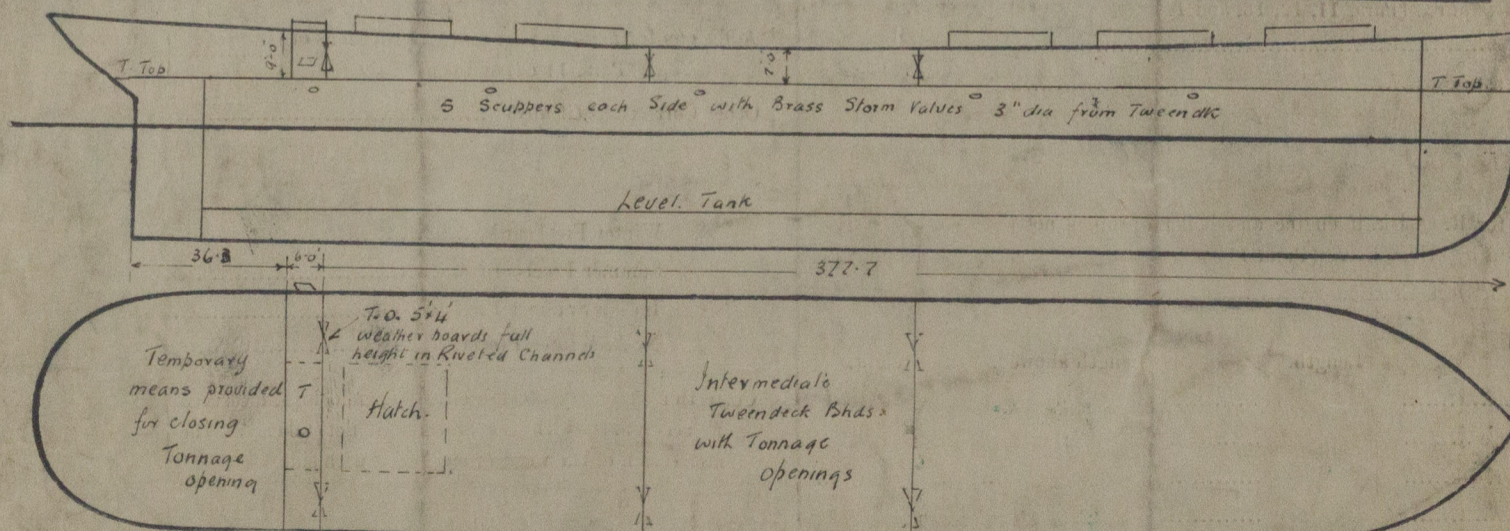 9'-0"
7'-0"
T. Top
T Top.
5 Scuppers each Side with Brass Storm Valves 3" dia from Tweendk
Level. Tank
36.3
6-0"
377.7
T.O. 5'x4'
weather boards full
height in Riveted Channels
Temporary
means provided
for closing
Tonnage
opening
T
O
Hatch.
Intermediate
Tweendeck Bhds.
with Tonnage
Openings